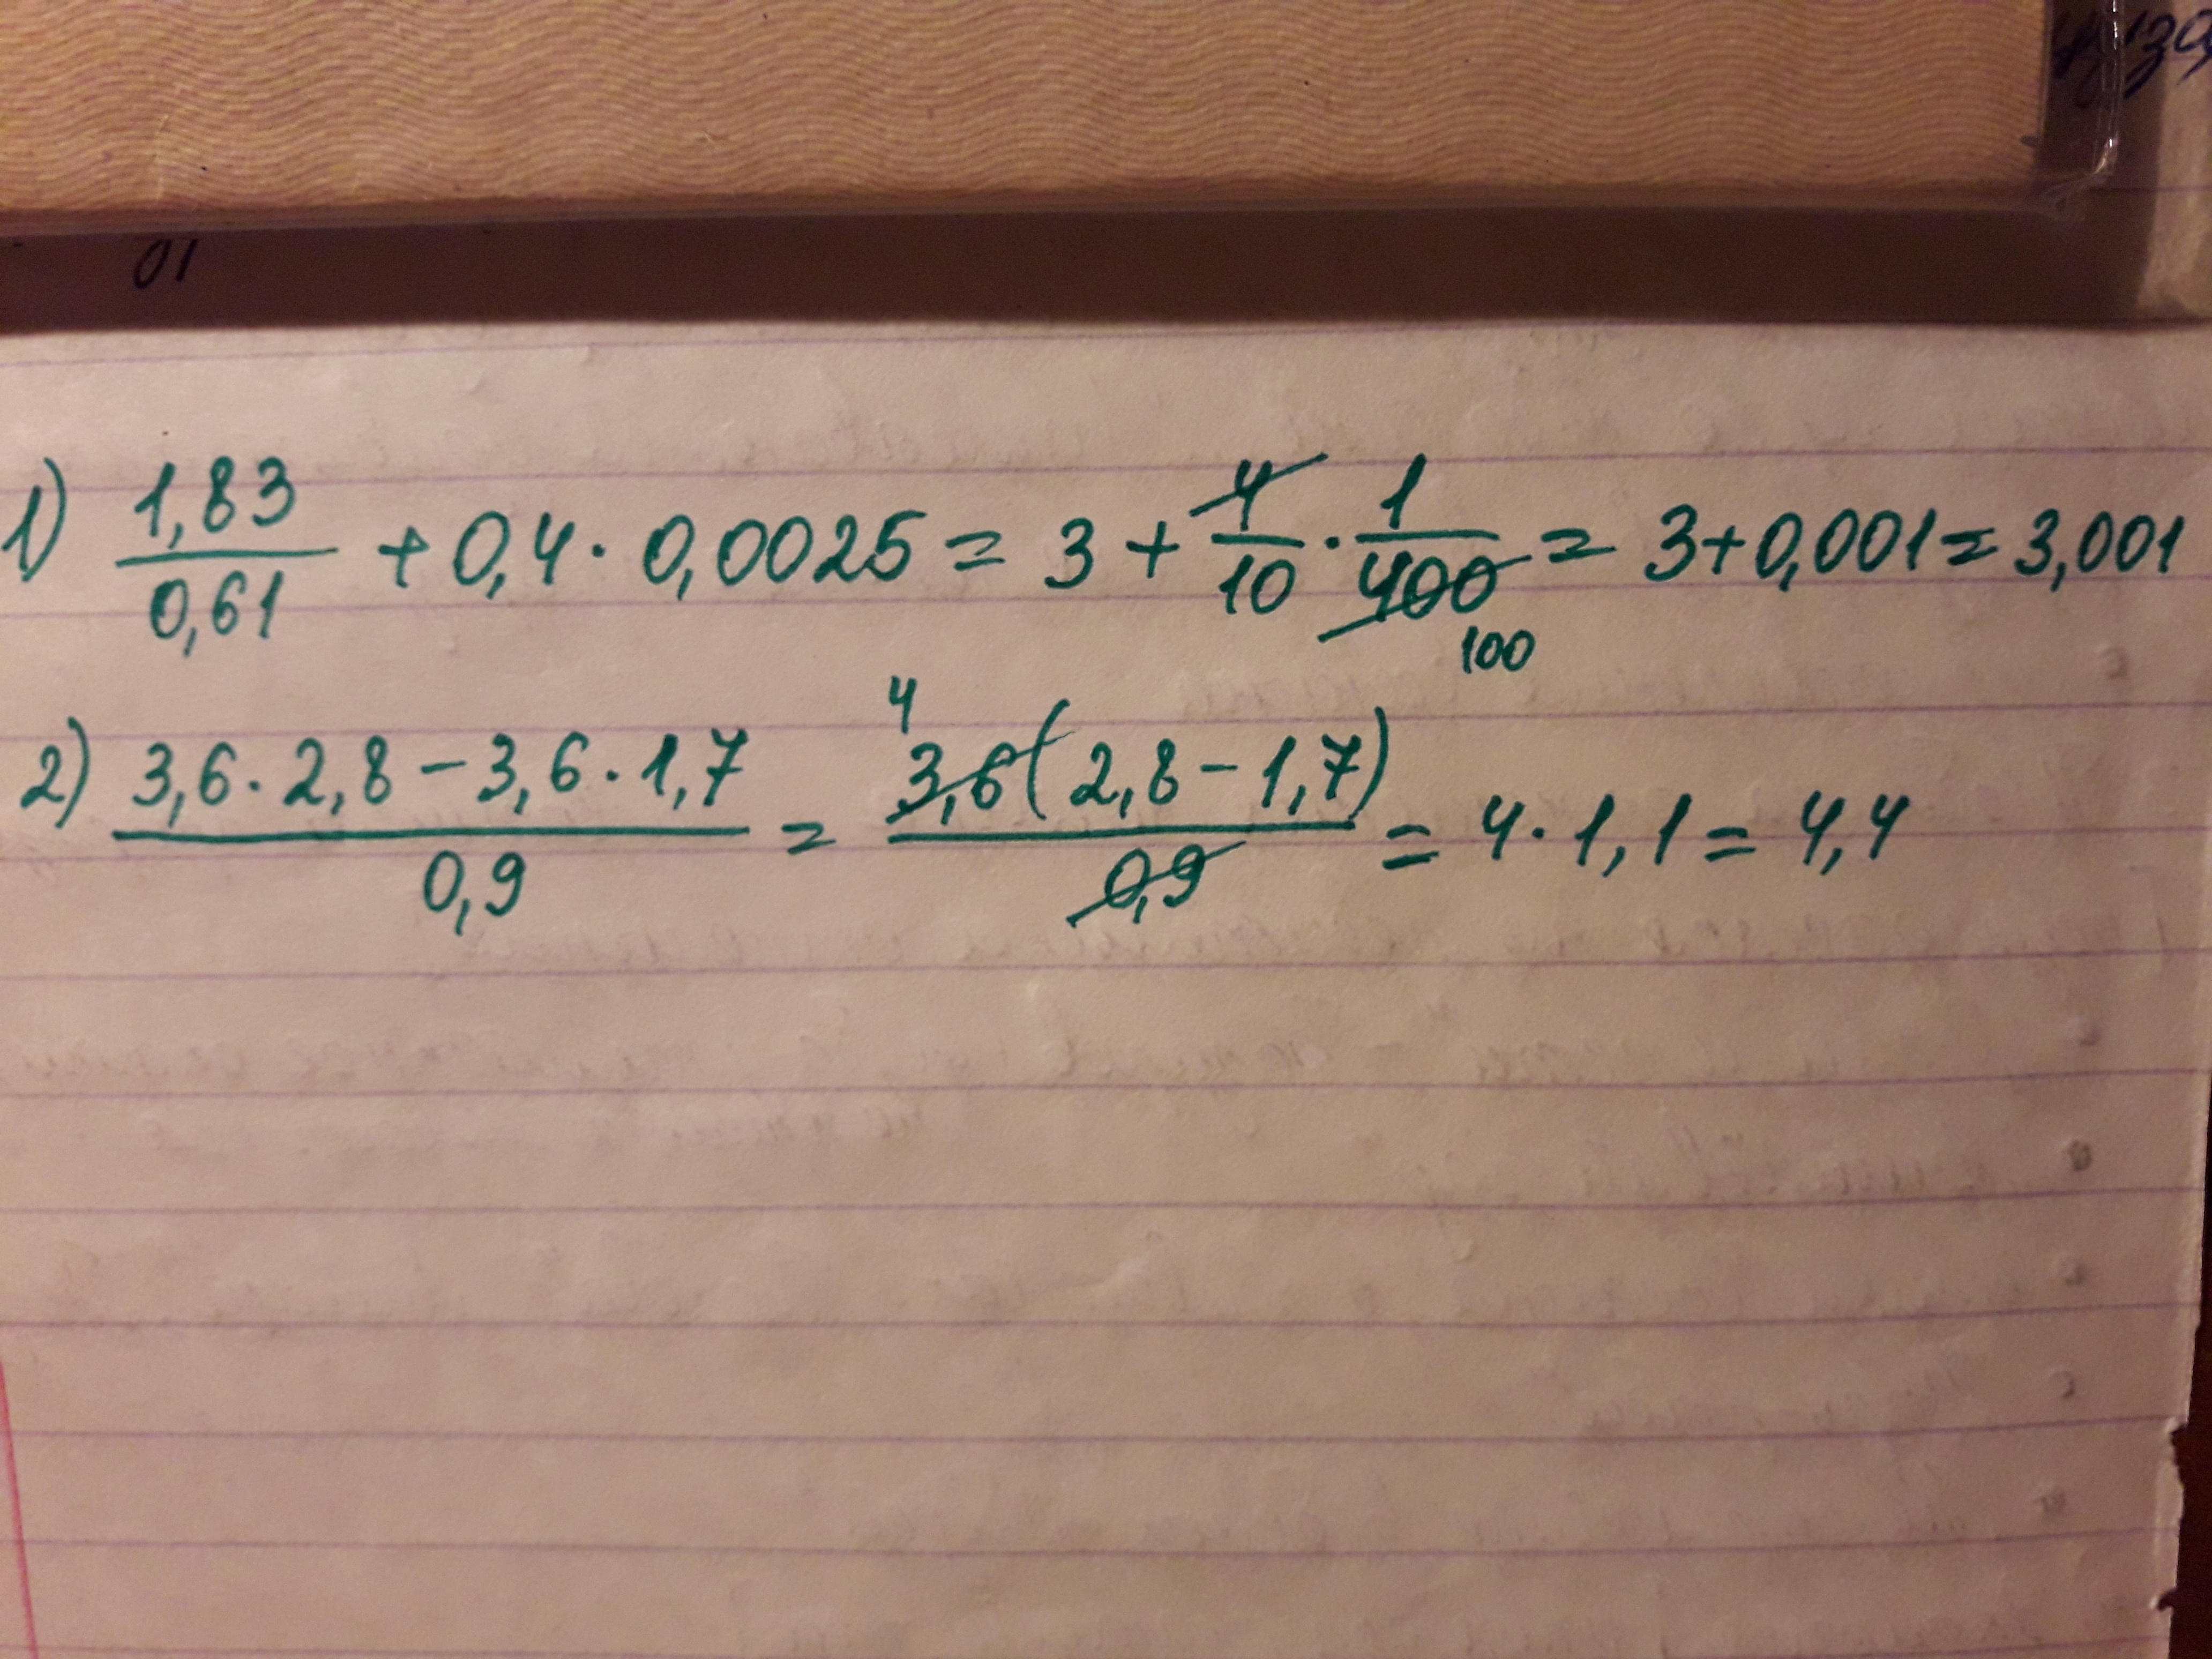 01
1) 1,83/0,61 + 0,4 · 0,0025 = 3 + 4/10 · 1/400 100 = 3+0,001 = 3,001
2) 3,6 · 2,8 – 3,6 · 1,7/0,9 = 4 3,6(2,8 – 1,7)/0,9 = 4 · 1,1 = 4,4